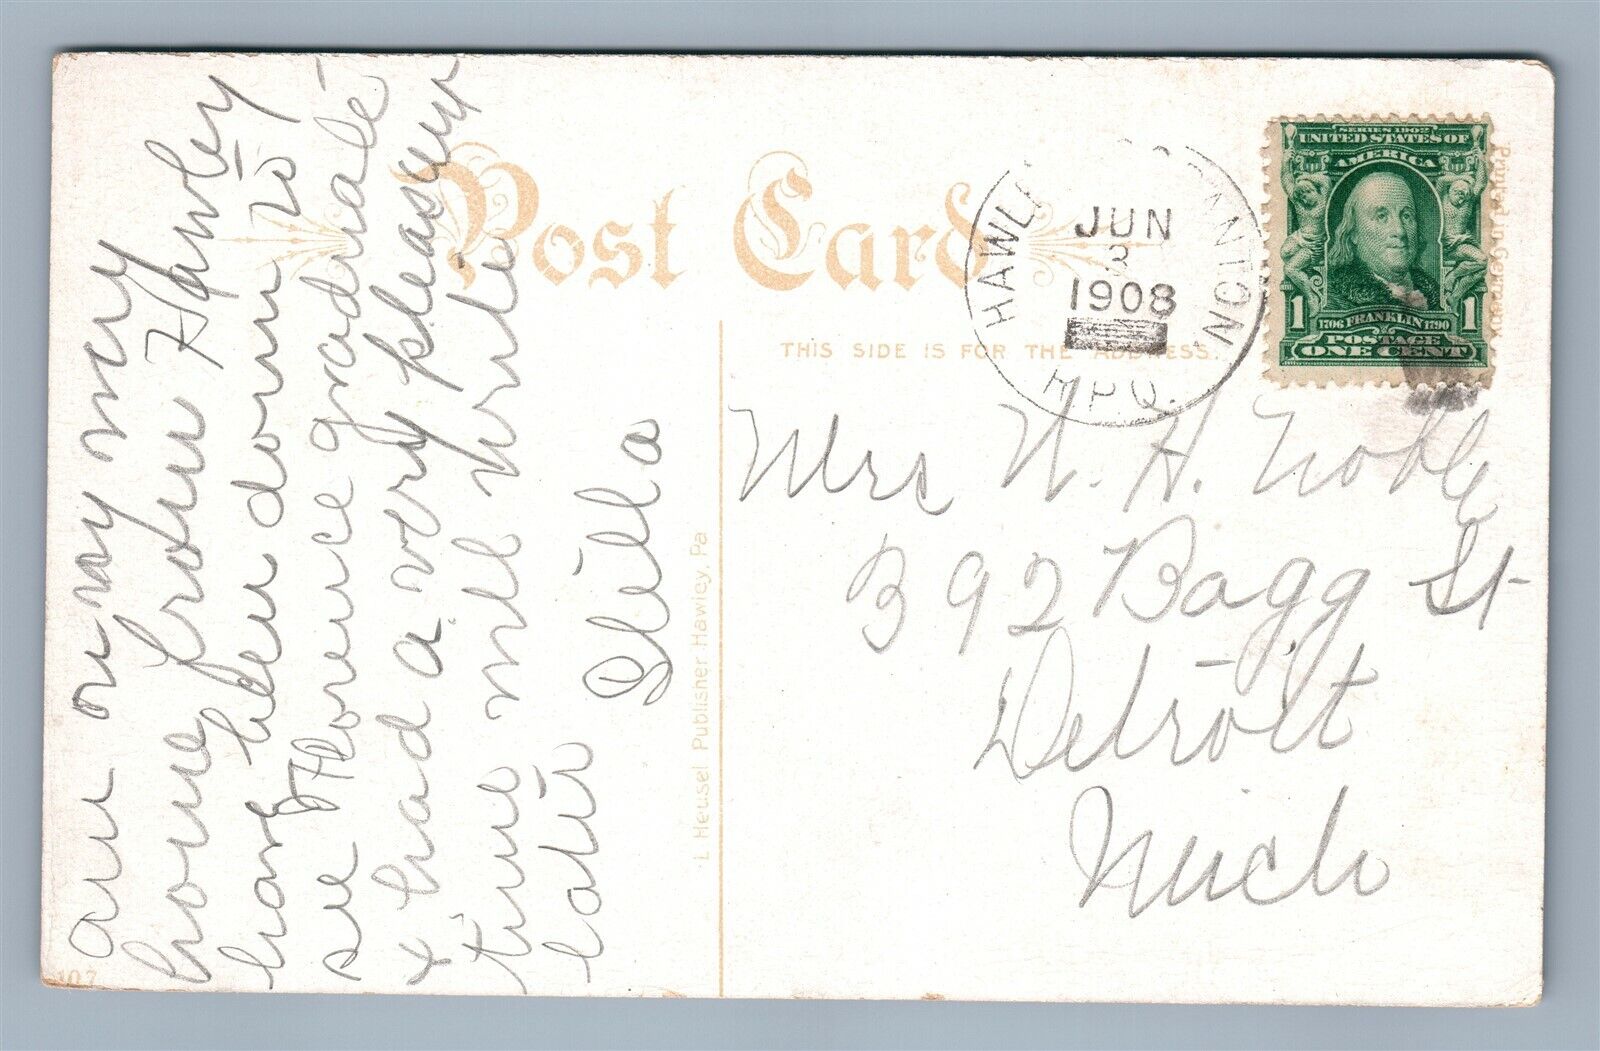 am on my way
home from Hawley
have been down to
see Florence graduate
& had a very pleasant
time will write
later
Stella
107
L Heusel Publisher Hawley, Pa
Post Card
THIS SIDE IS FOR THE ADDRESS.
HAWLEY
JUN
1908
R.P.O.
SERIES 1902
UNITED STATES OF
AMERICA
1 1
1706 FRANKLIN 1790
POSTAGE
ONE CENT
Printed in Germany
Mrs H. Noble
392 Bagg St
Detroit
Mich